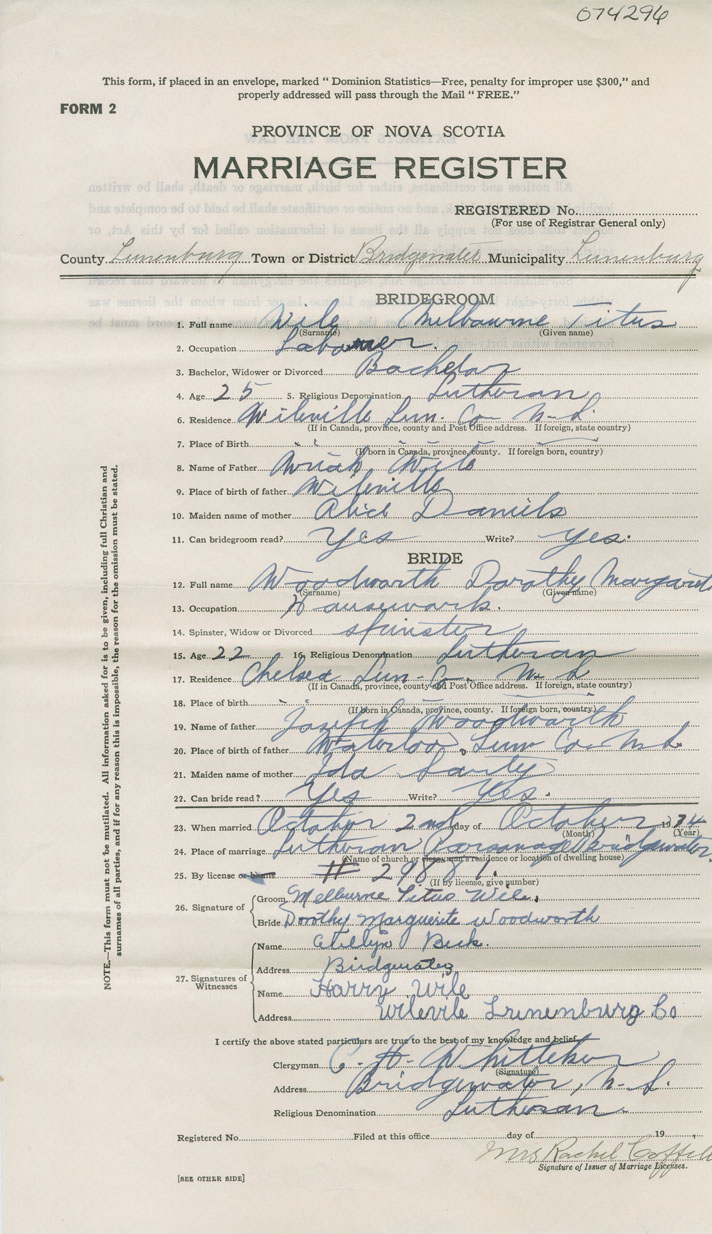 074296
This form, if placed in an envelope, marked "Dominion Statistics—Free, penalty for improper use $300," and
properly addressed will pass through the Mail "FREE."
FORM 2
PROVINCE OF NOVA SCOTIA
MARRIAGE REGISTER
REGISTERED No.
(For use of Registrar General only)
County Lunenburg Town or District Bridgewater Municipality Lunenburg
BRIDEGROOM
1. Full name Wile Melbourne Titus
(Surname) (Given name)
2. Occupation Labourer.
3. Bachelor, Widower or Divorced Bachelor
4. Age 25 5. Religious Denomination Lutheran
6. Residence Wileville Lun. Co N.S.
(If in Canada, province, county and Post Office address. If foreign, state country)
7. Place of Birth " "
(If born in Canada, province, county. If foreign born, country)
8. Name of Father Uriah Wile
9. Place of birth of father Wileville
10. Maiden name of mother Alice Daniels
11. Can bridegroom read? Yes Write? Yes.
BRIDE
12. Full name Woodworth Dorothy Margaret
(Surname) (Given name)
13. Occupation Housework.
14. Spinster, Widow or Divorced spinster
15. Age 22 16. Religious Denomination Lutheran
17. Residence Chelsea Lun. Co. N.S
(If in Canada, province, county and Post Office address. If foreign, state country)
18. Place of birth " "
(If born in Canada, province, county. If foreign born, country)
19. Name of father Joseph Woodworth
20. Place of birth of father Waterloo, Lun Co N.S.
21. Maiden name of mother Ida
22. Can bride read? Yes Write? Yes.
23. When married October 2nd day of October 1934
(Month) (Year)
24. Place of marriage Lutheran Parsonage Bridgewater
(Name of church or clergyman's residence or location of dwelling house)
25. By license or banns # 29881.
(If by license, give number)
26. Signature of
Groom Melburne Titus Wile.
Bride Dorothy Marguerite Woodworth
27. Signatures of Witnesses
Name Beck.
Address Bridgewater
Name Harry Wile
Address Wilevile Lunenburg Co
I certify the above stated particulars are true to the best of my knowledge and belief.
Clergyman C. H. Whitteker
(Signature)
Address Bridgewater, N.S.
Religious Denomination Lutheran.
Registered No. Filed at this office day of 19
Mrs Rachel
Signature of Issuer of Marriage Licenses.
[SEE OTHER SIDE]
NOTE.—This form must not be mutilated. All information asked for is to be given, including full Christian and
surnames of all parties, and if for any reason this is impossible, the reason for the omission must be stated.